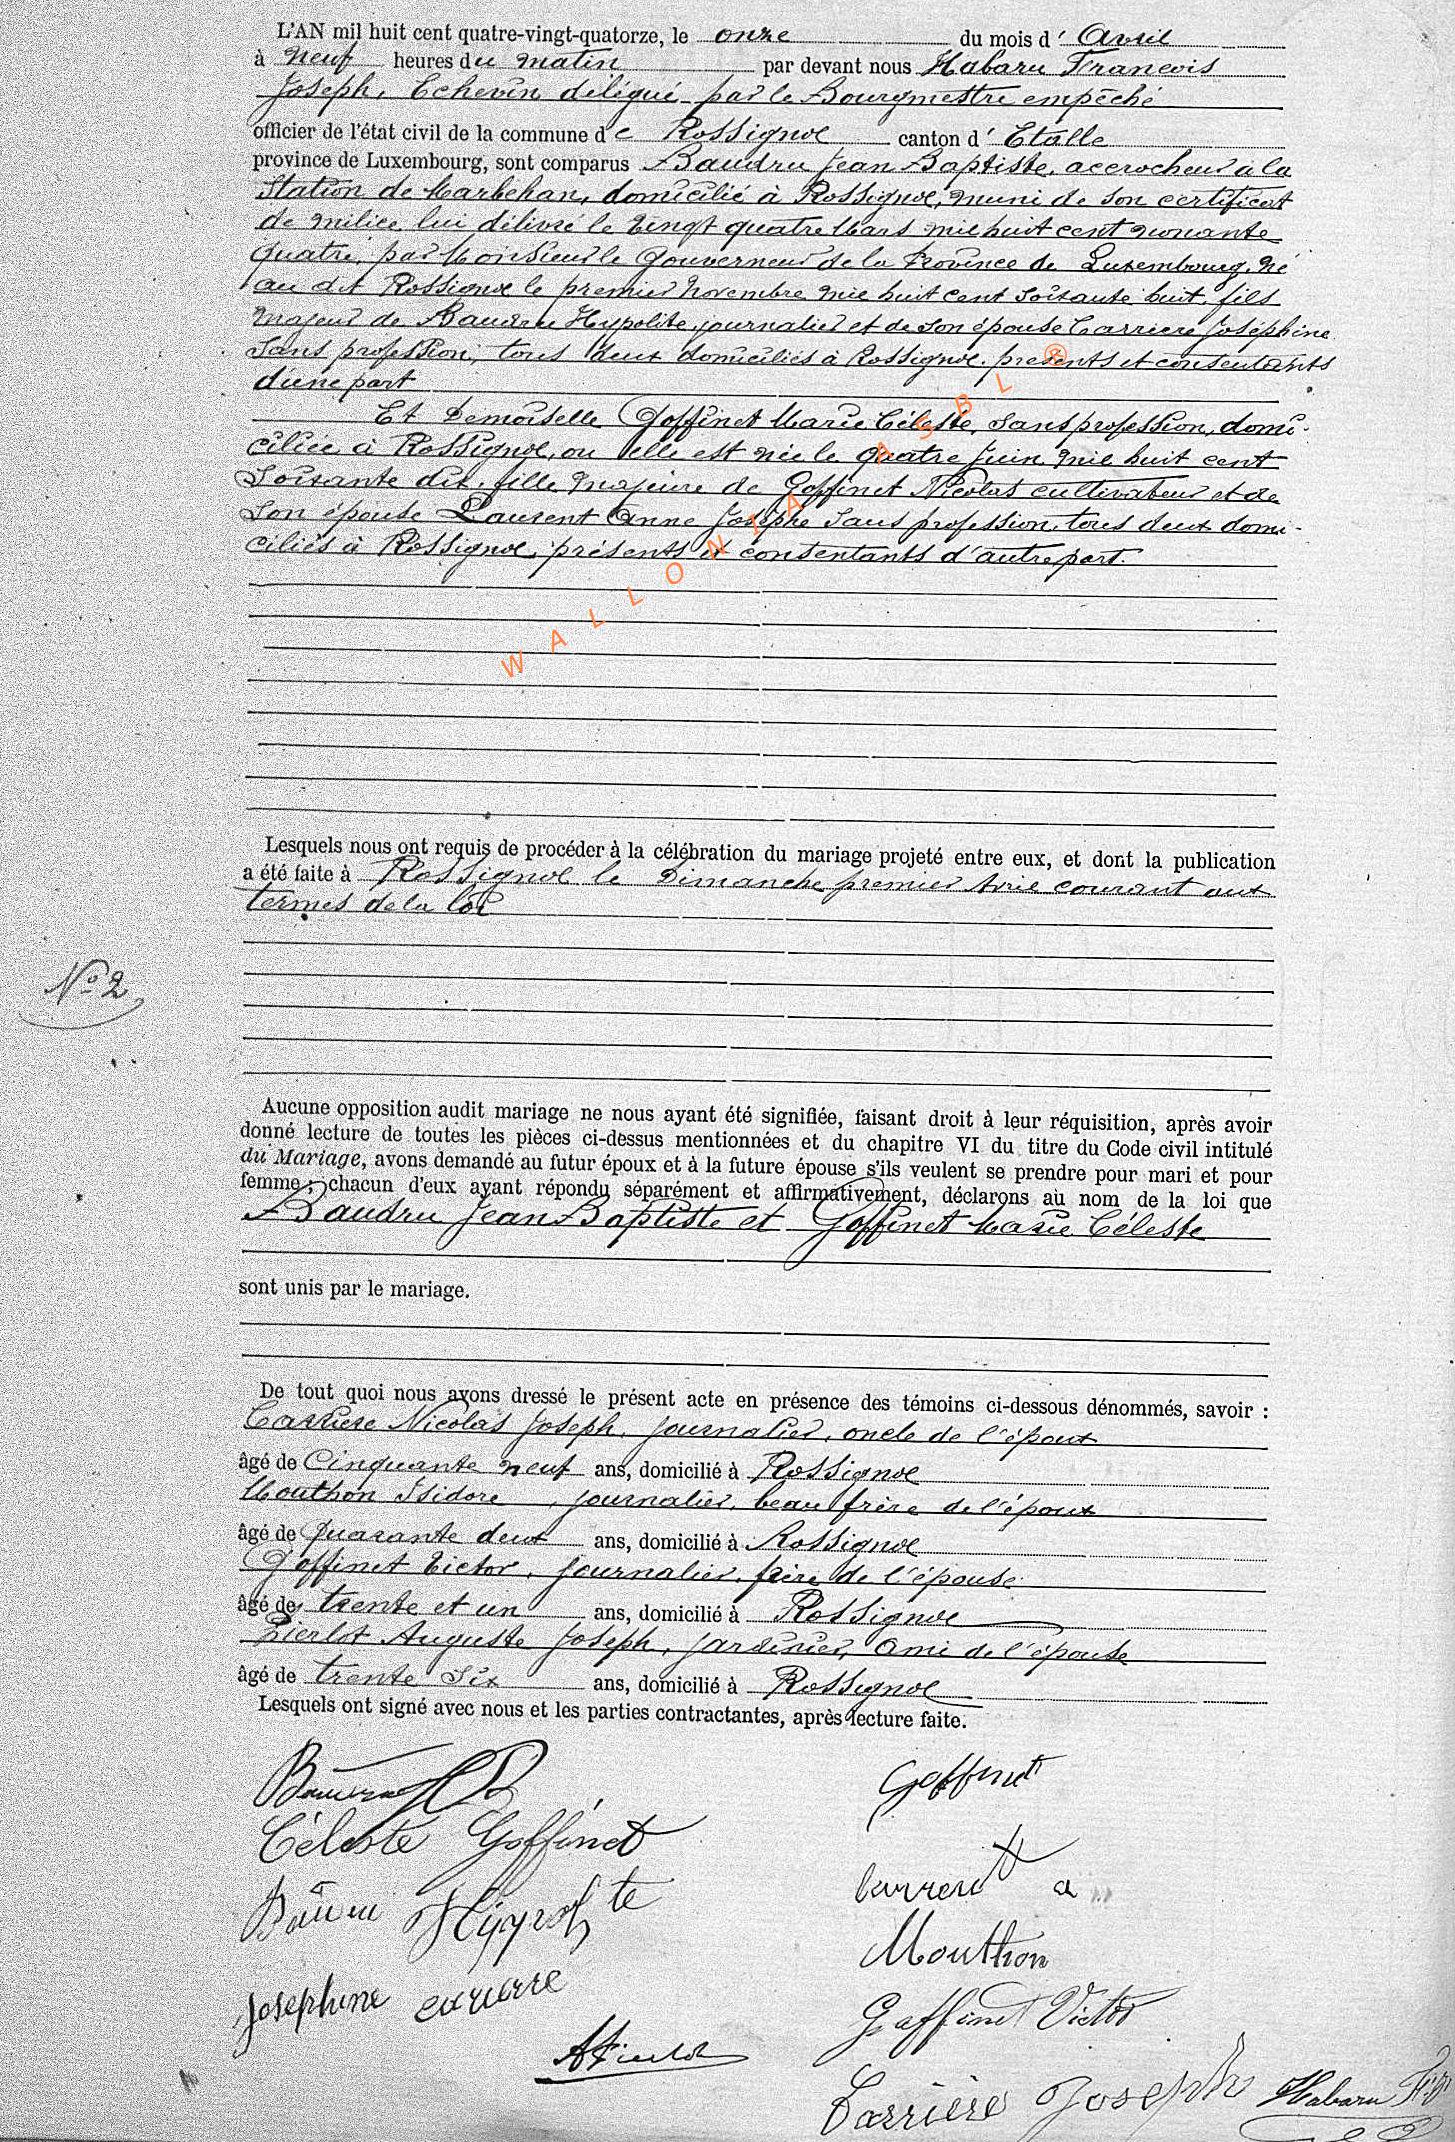 L'AN mil huit cent quatre-vingt-quatorze, le onze du mois d' Avril
à neuf heures du matin par devant nous Habaru Francois
Joseph, Echevin délégué par le Bourgmestre empêché
officier de l'état civil de la commune de Rossignol canton d' Etalle
province de Luxembourg, sont comparus Baudru Jean Baptiste, accrocheur à la
Station de Marbehan, domicilié à Rossignol, muni de son certificat
de milice lui délivré le vingt quatre Mars mil huit cent nonante
quatre, par Monsieur le Gouverneur de la Province de Luxembourg, né
au dit Rossignol le premier Novembre mil huit cent soixante huit, fils
majeur de Baudru Hypolite, journalier et de son épouse Carriere Joséphine
sans profession, tous deux domiciliés à Rossignol, présents et consentants
d'une part
Et Demoiselle Goffinet Marie Céleste, sans profession, domi-
ciliée à Rossignol, ou elle est née le quatre Juin mil huit cent
Soixante dix, fille majeure de Goffinet Nicolas cultivateur et de
Son épouse Laurent Anne Josèphe Sans profession, tous deux domi-
ciliés à Rossignol, présents et consentants d'autre part.
WALLONIA ASBL ®
Lesquels nous ont requis de procéder à la célébration du mariage projeté entre eux, et dont la publication
a été faite à Rossignol le Dimanche premier Avril courant aux
termes de la loi
N° 2
Aucune opposition audit mariage ne nous ayant été signifiée, faisant droit à leur réquisition, après avoir
donné lecture de toutes les pièces ci-dessus mentionnées et du chapitre VI du titre du Code civil intitulé
du Mariage, avons demandé au futur époux et à la future épouse s'ils veulent se prendre pour mari et pour
femme; chacun d'eux ayant répondu séparément et affirmativement, déclarons au nom de la loi que
Baudru Jean Baptiste et Goffinet Marie Céleste
sont unis par le mariage.
De tout quoi nous avons dressé le présent acte en présence des témoins ci-dessous dénommés, savoir :
Carriere Nicolas Joseph, journalier, oncle de l'époux
âgé de Cinquante neuf ans, domicilié à Rossignol
Mouthon Isidore, journalier, beau frère de l'époux
âgé de quarante deux ans, domicilié à Rossignol
Goffinet Victor, journalier, frère de l'épouse
âgé de trente et un ans, domicilié à Rossignol
Pierlot Auguste Joseph, jardinier, ami de l'épouse
âgé de trente six ans, domicilié à Rossignol
Lesquels ont signé avec nous et les parties contractantes, après lecture faite.
Goffinet
Céleste Goffinet
Hypolite
Mouthon
Josephine carierre
Goffinet Victor
Carrière Joseph
Habaru